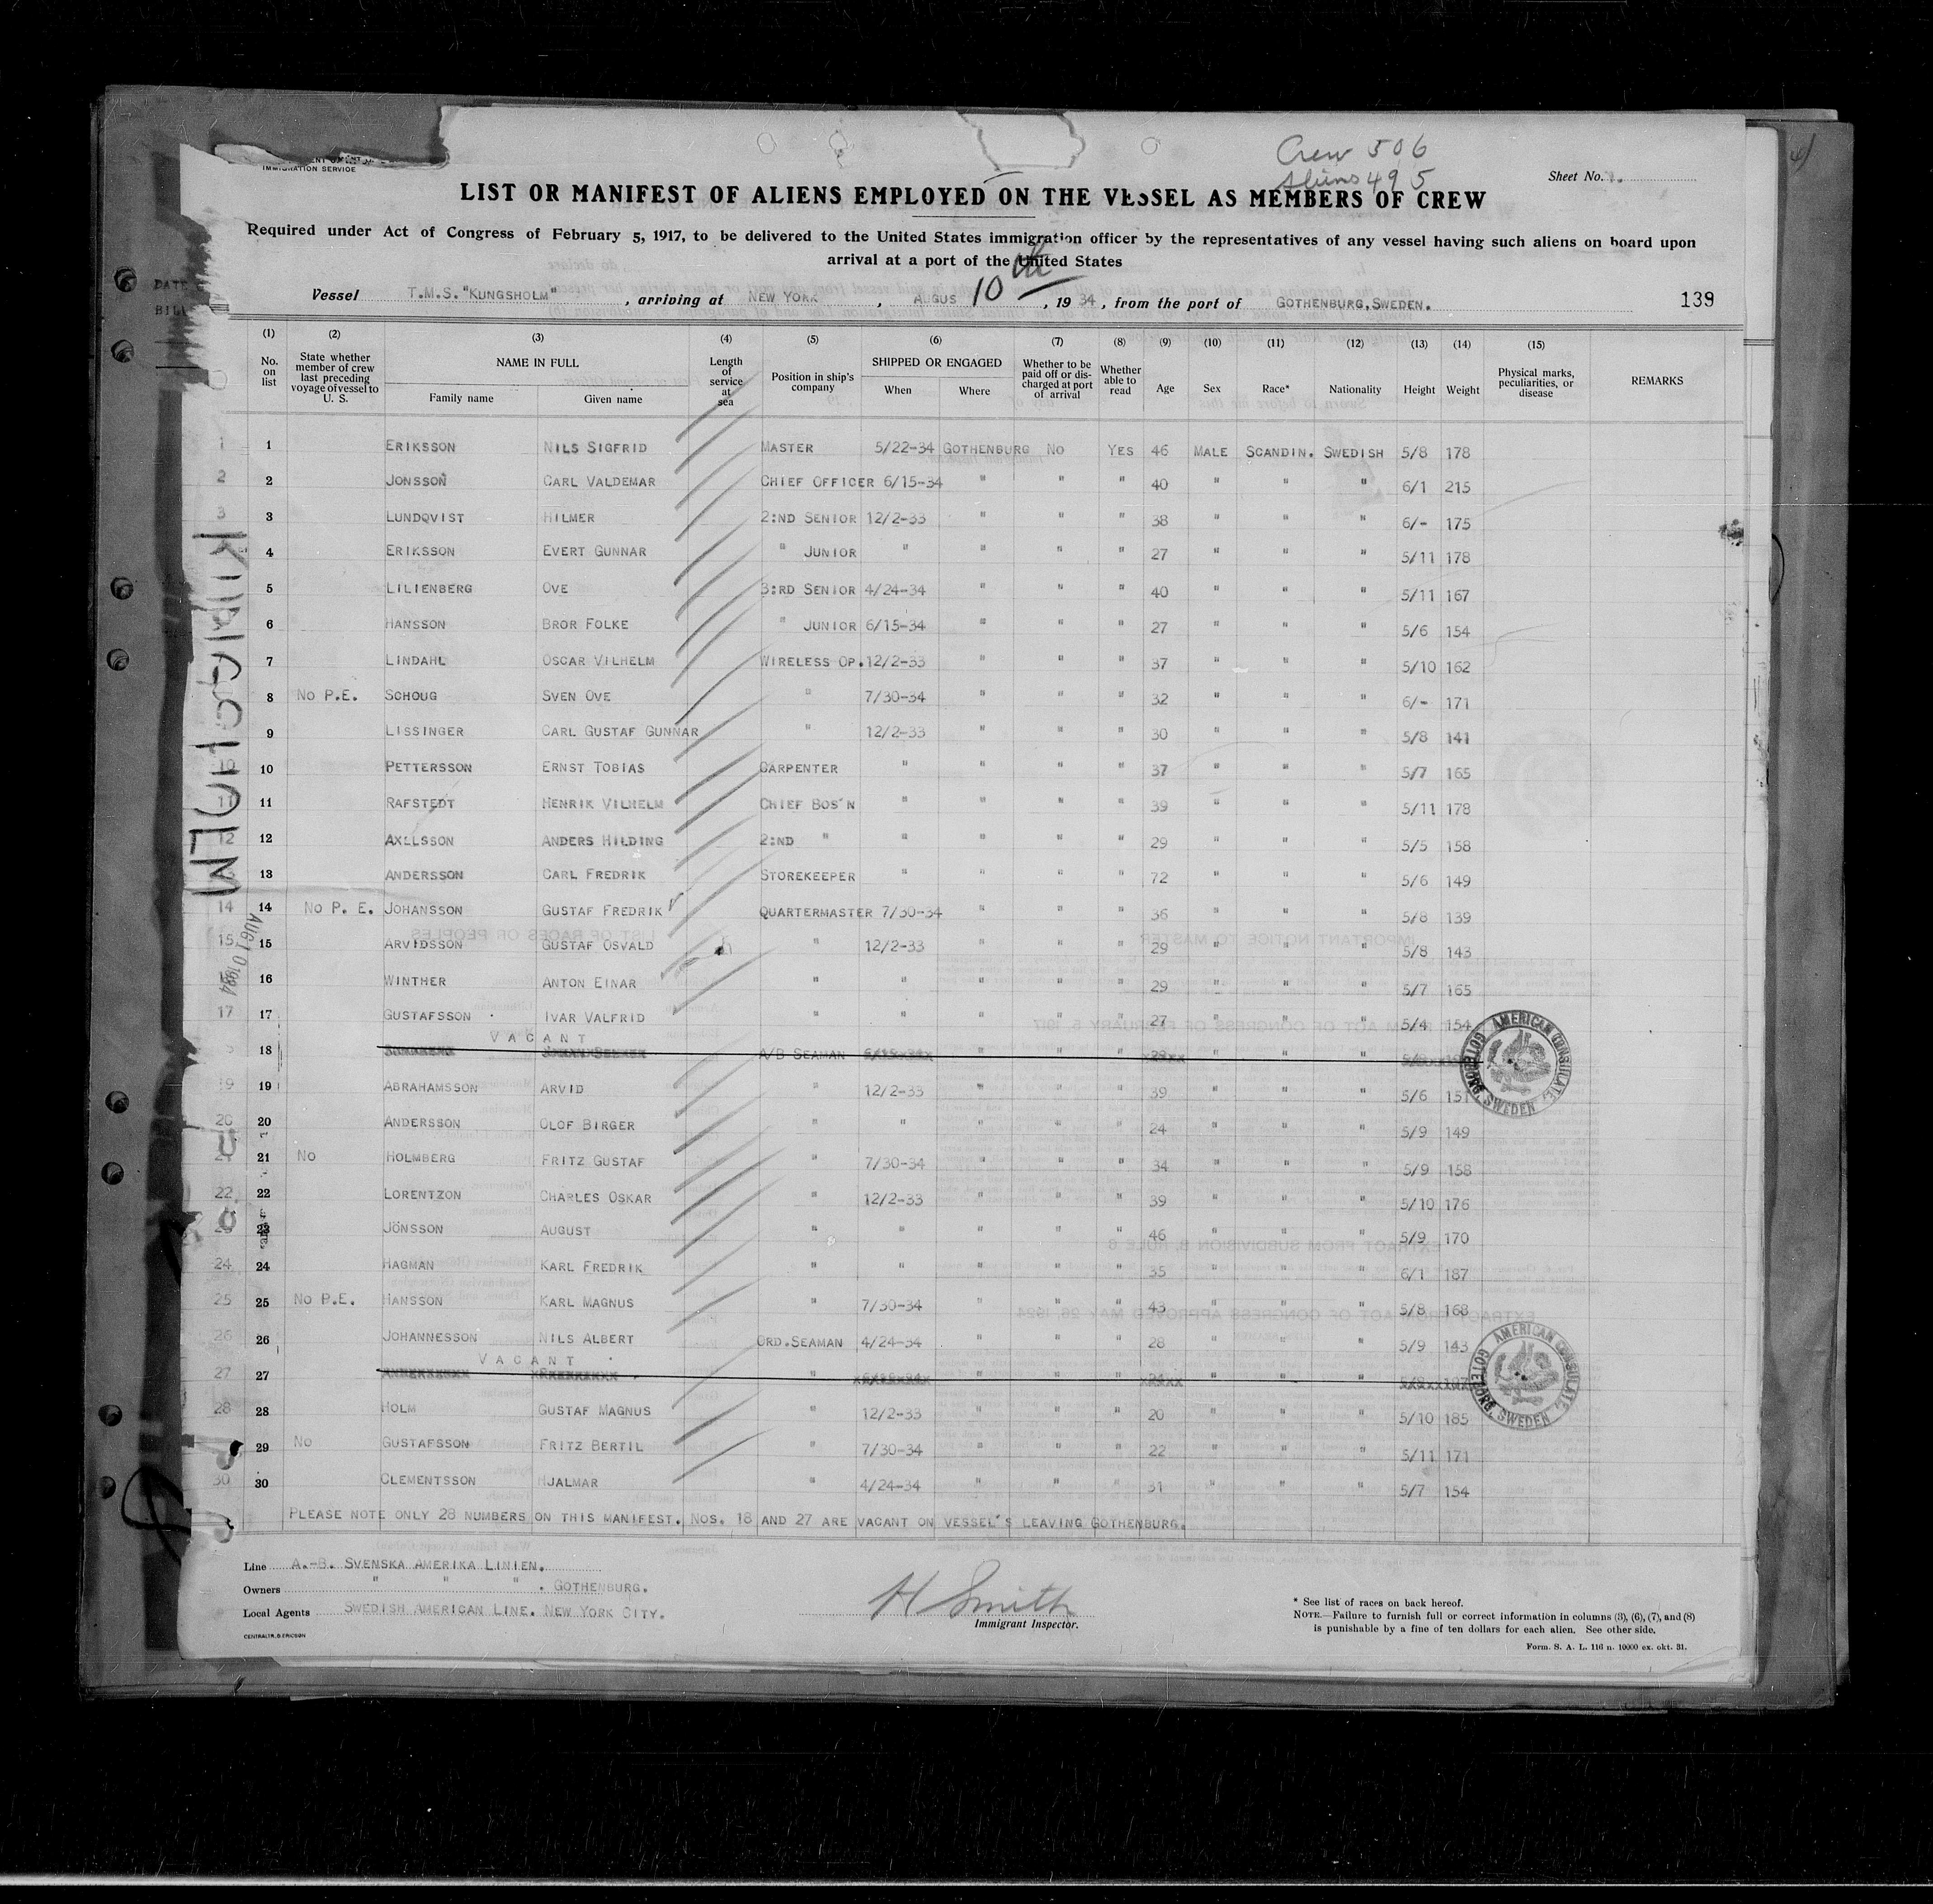 IMMIGRATION SERVICE
Crew 506
Aliens 495
Sheet No. 1.
LIST OR MANIFEST OF ALIENS EMPLOYED ON THE VESSEL AS MEMBERS OF CREW
Required under Act of Congress of February 5, 1917, to be delivered to the United States immigration officer by the representatives of any vessel having such aliens on board upon
arrival at a port of the United States
Vessel T.M.S."KUNGSHOLM", arriving at NEW YORK, AUGUS 10th, 1934, from the port of GOTHENBURG,SWEDEN. 139
(1) (2) (3) (4) (5) (6) (7) (8) (9) (10) (11) (12) (13) (14) (15)
No. on list State whether member of crew last preceding voyage of vessel to U. S. NAME IN FULL Family name Given name Length of service at sea Position in ship's company SHIPPED OR ENGAGED When Where Whether to be paid off or discharged at port of arrival Whether able to read Age Sex Race* Nationality Height Weight Physical marks, peculiarities, or disease REMARKS
1 1 ERIKSSON NILS SIGFRID MASTER 5/22-34 GOTHENBURG NO YES 46 MALE SCANDIN. SWEDISH 5/8 178
2 2 JONSSON CARL VALDEMAR CHIEF OFFICER 6/15-34 " " " 40 " " " 6/1 215
3 3 LUNDQVIST HILMER 2:ND SENIOR 12/2-33 " " " 38 " " " 6/- 175
4 ERIKSSON EVERT GUNNAR " JUNIOR " " " " 27 " " " 5/11 178
5 LILIENBERG OVE 3:RD SENIOR 4/24-34 " " " 40 " " " 5/11 167
6 HANSSON BROR FOLKE " JUNIOR 6/15-34 " " " 27 " " " 5/6 154
7 LINDAHL OSCAR VILHELM WIRELESS OP. 12/2-33 " " " 37 " " " 5/10 162
8 NO P.E. SCHOUG SVEN OVE " 7/30-34 " " " 32 " " " 6/- 171
9 LISSINGER CARL GUSTAF GUNNAR " 12/2-33 " " " 30 " " " 5/8 141
10 10 PETTERSSON ERNST TOBIAS CARPENTER " " " " 37 " " " 5/7 165
11 11 RAFSTEDT HENRIK VILHELM CHIEF BOS'N " " " " 39 " " " 5/11 178
12 12 AXELSSON ANDERS HILDING 2:ND " " " " " 29 " " " 5/5 158
13 ANDERSSON CARL FREDRIK STOREKEEPER " " " " 72 " " " 5/6 149
14 14 NO P. E. JOHANSSON GUSTAF FREDRIK QUARTERMASTER 7/30-34 " " " 36 " " " 5/8 139
15 15 ARVIDSSON GUSTAF OSVALD " 12/2-33 " " " 29 " " " 5/8 143
16 WINTHER ANTON EINAR " " " " " 29 " " " 5/7 165
17 17 GUSTAFSSON IVAR VALFRID " " " " " 27 " " " 5/4 154
VACANT
18 A/B SEAMAN " " " " " "
19 19 ABRAHAMSSON ARVID " 12/2-33 " " " 39 " " " 5/6 151
20 20 ANDERSSON OLOF BIRGER " " " " " 24 " " " 5/9 149
21 21 NO HOLMBERG FRITZ GUSTAF " 7/30-34 " " " 34 " " " 5/9 158
22 22 LORENTZON CHARLES OSKAR " 12/2-33 " " " 39 " " " 5/10 176
23 23 JÖNSSON AUGUST " " " " " 46 " " " 5/9 170
24 24 HAGMAN KARL FREDRIK " " " " " 35 " " " 6/1 187
25 25 NO P.E. HANSSON KARL MAGNUS " 7/30-34 " " " 43 " " " 5/8 168
26 26 JOHANNESSON NILS ALBERT ORD.SEAMAN 4/24-34 " " " 28 " " " 5/9 143
VACANT
27 27 " " " " " " "
28 28 HOLM GUSTAF MAGNUS " 12/2-33 " " " 20 " " " 5/10 185
29 NO GUSTAFSSON FRITZ BERTIL " 7/30-34 " " " 22 " " " 5/11 171
30 30 CLEMENTSSON HJALMAR " 4/24-34 " " " 31 " " " 5/7 154
PLEASE NOTE ONLY 28 NUMBERS ON THIS MANIFEST. NOS. 18 AND 27 ARE VACANT ON VESSEL'S LEAVING GOTHENBURG.
KUNGSHOLM
AUG 10 1934
AMERICAN CONSULATE, GOTEBORG, SWEDEN
AMERICAN CONSULATE, GOTEBORG, SWEDEN
Line A.-B. SVENSKA AMERIKA LINIEN.
Owners " " " . GOTHENBURG.
Local Agents SWEDISH AMERICAN LINE. NEW YORK CITY.
CENTRALTR. G. ERICSON
H Smith
Immigrant Inspector.
* See list of races on back hereof.
NOTE.—Failure to furnish full or correct information in columns (3), (6), (7), and (8)
is punishable by a fine of ten dollars for each alien. See other side.
Form. S. A. L. 116 n. 10000 ex. okt. 31.